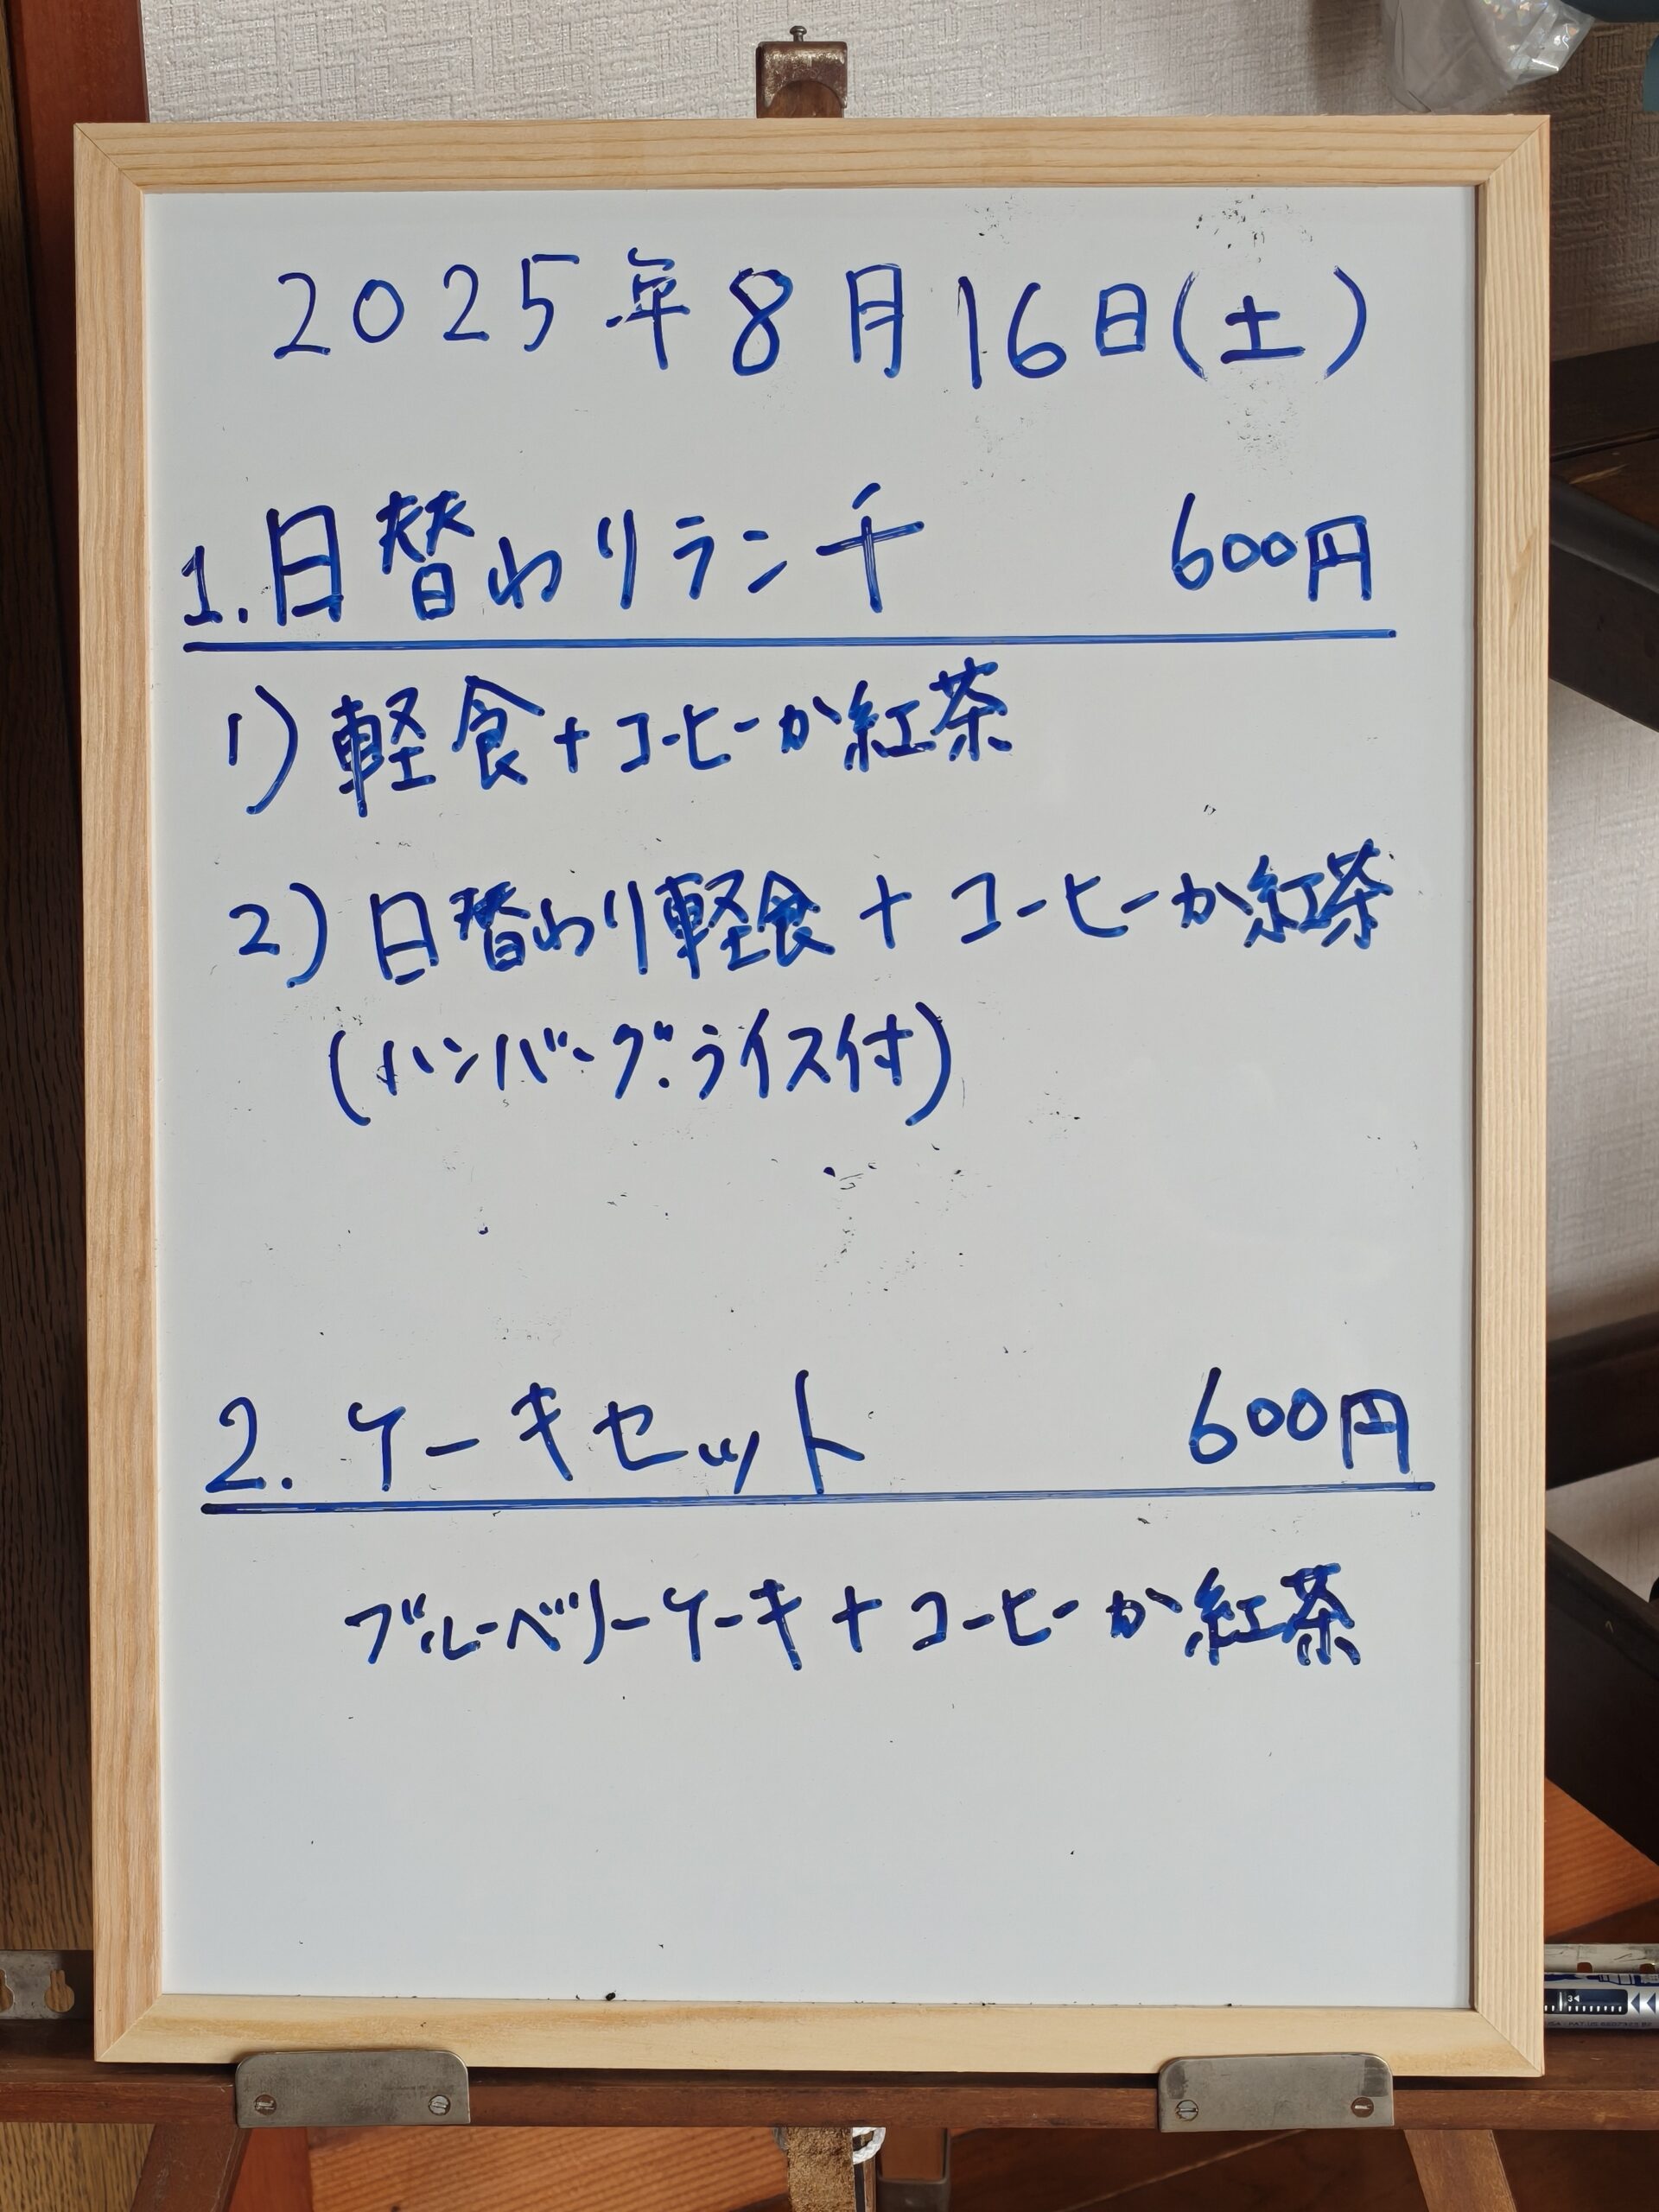 2025年8月16日(土)
1.日替わりランチ 600円
1)軽食+コーヒーか紅茶
2)日替わり軽食+コーヒーか紅茶
(ハンバーグ.ライス付)
2.ケーキセット 600円
ブルーベリーケーキ+コーヒーか紅茶